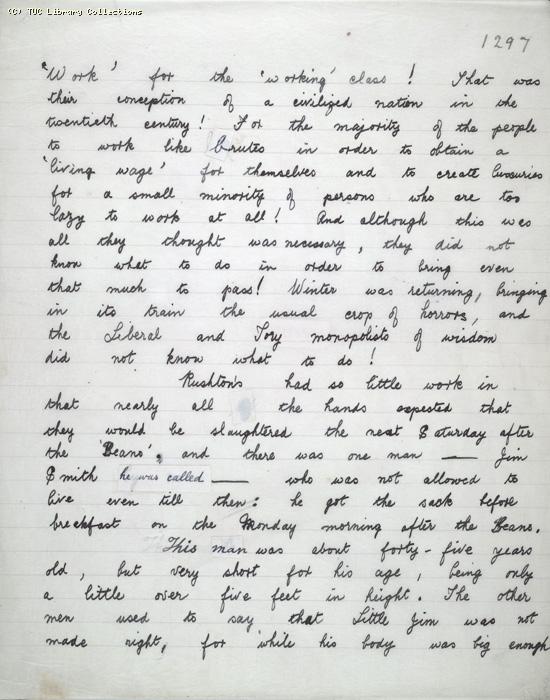 (C) TUC Library Collections
1297
'Work' for the 'working' class! That was
their conception of a civilized nation in the
twentieth century! For the majority of the people
to work like brutes in order to obtain a
'living wage' for themselves and to create luxuries
for a small minority of persons who are too
lazy to work at all! And although this was
all they thought was necessary, they did not
know what to do in order to bring even
that much to pass! Winter was returning, bringing
in its train the usual crop of horrors, and
the Liberal and Tory monopolists of wisdom
did not know what to do!
Rushton's had so little work in
that nearly all the hands expected that
they would be slaughtered the next Saturday after
the 'Beano', and there was one man — Jim
Smith he was called — who was not allowed to
live even till then: he got the sack before
breakfast on the Monday morning after the Beano.
This man was about forty-five years
old, but very short for his age, being only
a little over five feet in height. The other
men used to say that Little Jim was not
made right, for while his body was big enough